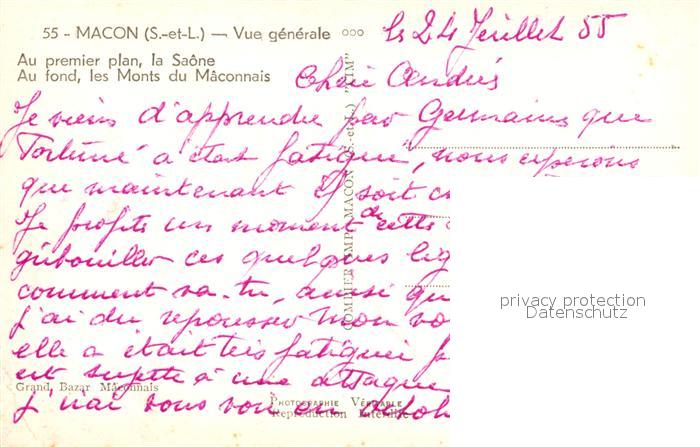 55 - MACON (S.-et-L.) — Vue générale
le 24 Juillet 55
Au premier plan, la Saône
Au fond, les Monts du Mâconnais
Chère Andrée
Je viens d'apprendre par Germaine que
Fortuné a était fatigué, nous espérons
que maintenant il soit
Je profite un moment de cette
gribouiller ces quelques lig
comment va-tu, ainsi qu
j'ai du repousser mon vo
elle a était très fatiguée p
est sujette à une attaque
j'irai vous voir en octob
Grand Bazar Mâconnais
PHOTOGRAPHIE VÉRITABLE
Reproduction Interdite
COMBIER IMP. MACON (S.-et-L.) "CIM"
privacy protection
Datenschutz